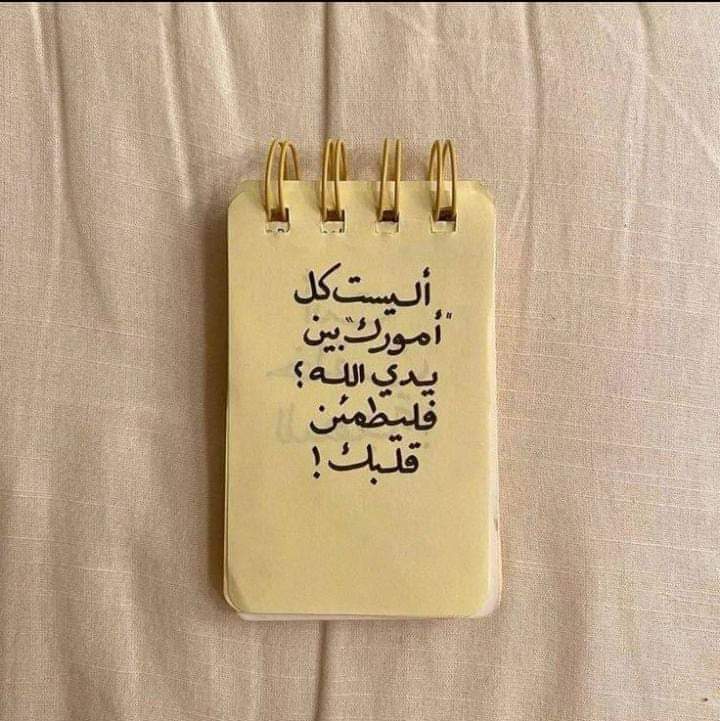 أليست كل
"أمورك" بين
يدي الله؟
فليطمئن
قلبك!